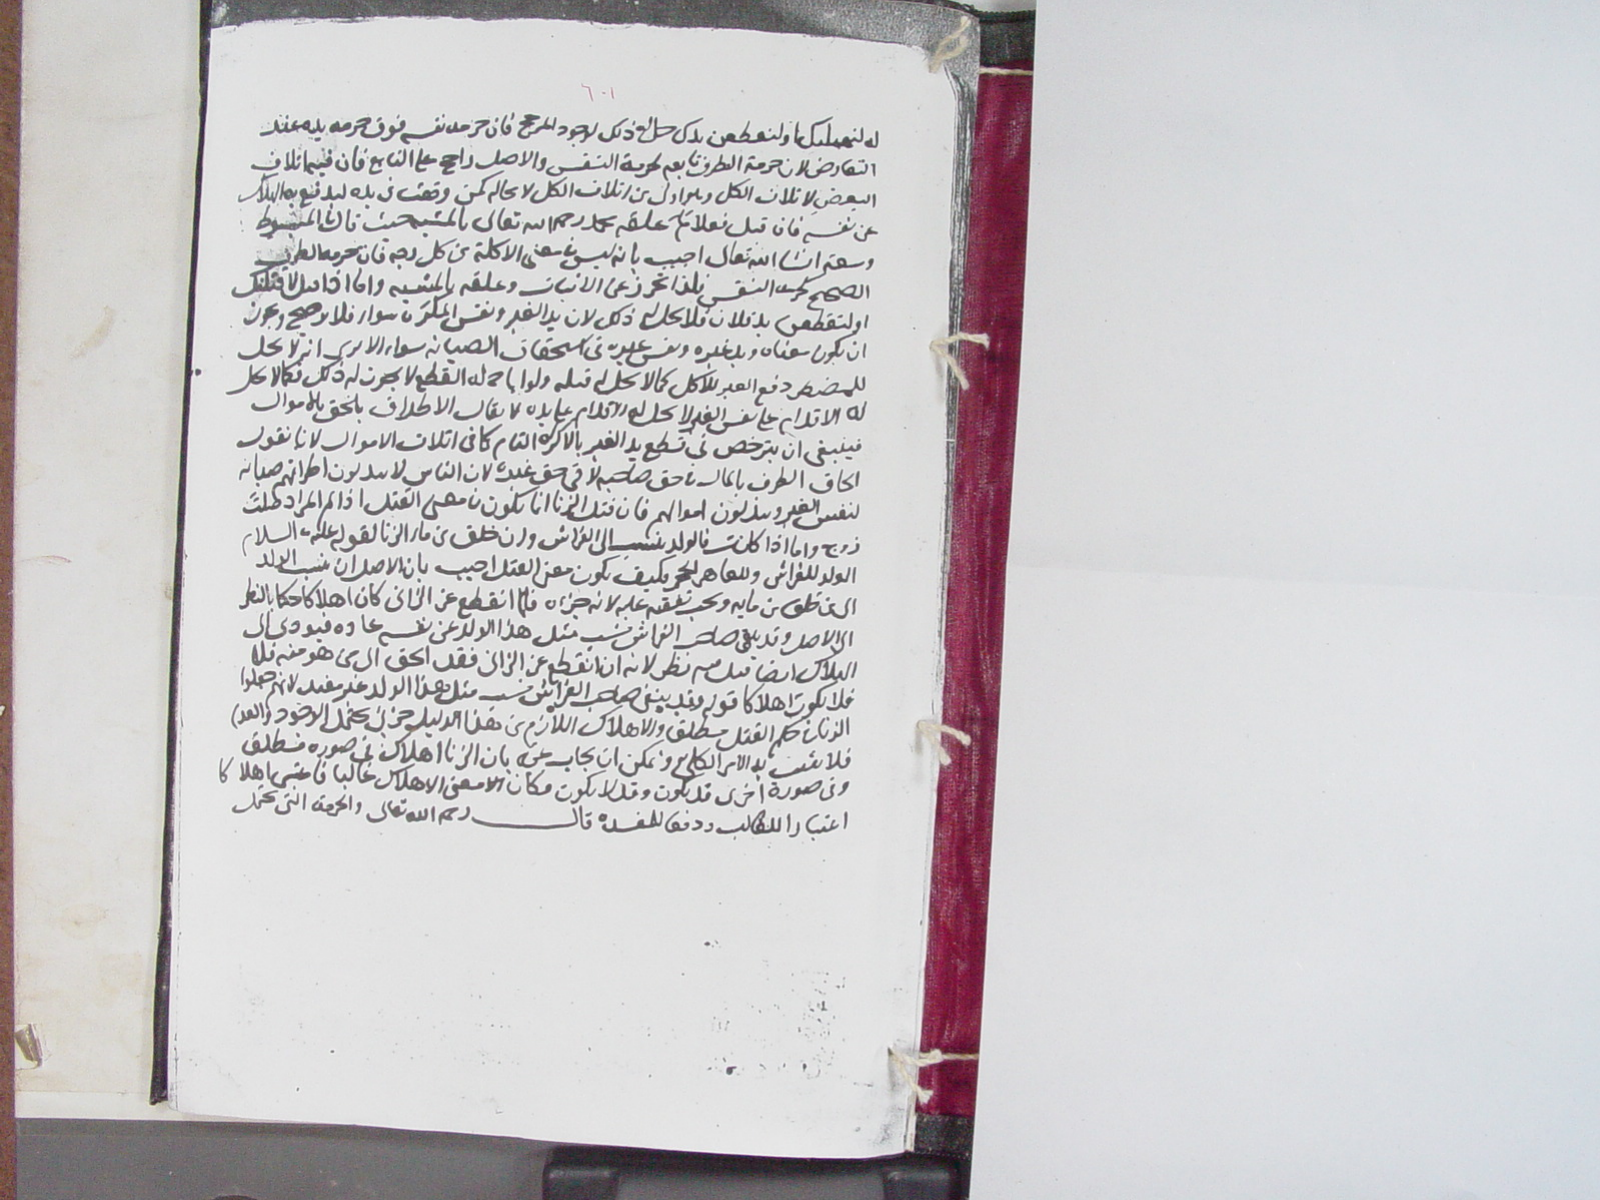 ٦٠١
له لنقتلنك او لنقطعن يدك حل له ذلك لوجود المرجح فان حرمة نفسه فوق حرمة يده عند
التعارض لان حرمة الطرف تابعة لحرمة النفس والاصل راجح على التابع فان فيه اتلاف
البعض لاتلاف الكل وهو اولى من اتلاف الكل لا محالة كمن وقعت في يده ليدفع به الهلاك
عن نفسه فان قيل فعلام علقه محمد رحمه الله تعالى بالمشيئة حيث قال في المبسوط
وسعه ان شا الله تعالى اجيب بانه ليس في معنى الاكلة من كل وجه فان حرمة الطرف
الصحيح كحرمة النفس فلذا تحرز عن الاثبات وعلقه بالمشيه واما اذا قيل لاقتلنك
او لتقطعن يد فلان فلا يحل له ذلك لان يد الغير ونفس المكره سواء فلا ترجيح وجوز
ان يكون معناه ويد غيره ونفس غيره في استحقاق الصيانه سواء الا يرى انه لا يحل
للمضطر قطع الغير للاكل كما لا يحل له قتله ولو اباح له القطع لا يجوز له ذلك فكما لا يحل
له الاقدام على نفس الغير لا يحل له الاقدام على يده لا يقال الاطراف يلحق بالاموال
فينبغي ان يترخص في قطع يد الغير بالاكراه التام كما في اتلاف الاموال لانا نقول
الحاق الطرف بالمال في حق صاحبه لا في حق غيره لان الناس لا يبذلون اطرافهم صيانه
لنفس الغير ويبذلون اموالهم فان قيل الزنا انما يكون في معنى القتل اذا لم المراد طلت
زوج واما اذا كانت فالولد ينسب الى الفراش وان خلق من ماء الزنا لقوله عليه السلام
الولد للفراش وللعاهر الحجر فكيف يكون معنى القتل اجيب بان الاصل ان ينسب الولد
الى من خلق من مايه ويجب نفقته عليه لانه جزءه فلما انقطع عن الزانى كان اهلاكا حكما بالنظر
الى الاصل وقد ينفى صاحب الفراش نسب مثل هذا الولد عن نفسه عادة فيودى الى
الهلاك ايضا قيل فيه نظر لانه ان انقطع عن الزانى فقد الحق الى من هو منه فلا
فلا يكون اهلاكا قوله وقد ينفى صاحب الفراش نسب مثل هذا الولد غير مفيد لانهم جعلوا
الزنا في حكم القتل مطلق والاهلاك اللازم من هذا الدليل جزئى يحتمل الوجود والعدم
فلا يثبت به الامر الكلى ويمكن ان يجاب عنه بان الزنا اهلاك في صورة مطلق
وفى صورة اخرى قد يكون وقد لا يكون فكان الامعنى الاهلاك غالبا فاعتبر اهلاكا
اعتبارا للغالب ودفعا للمفسدة قال رحمه الله تعالى والحرمة التى تحتمل